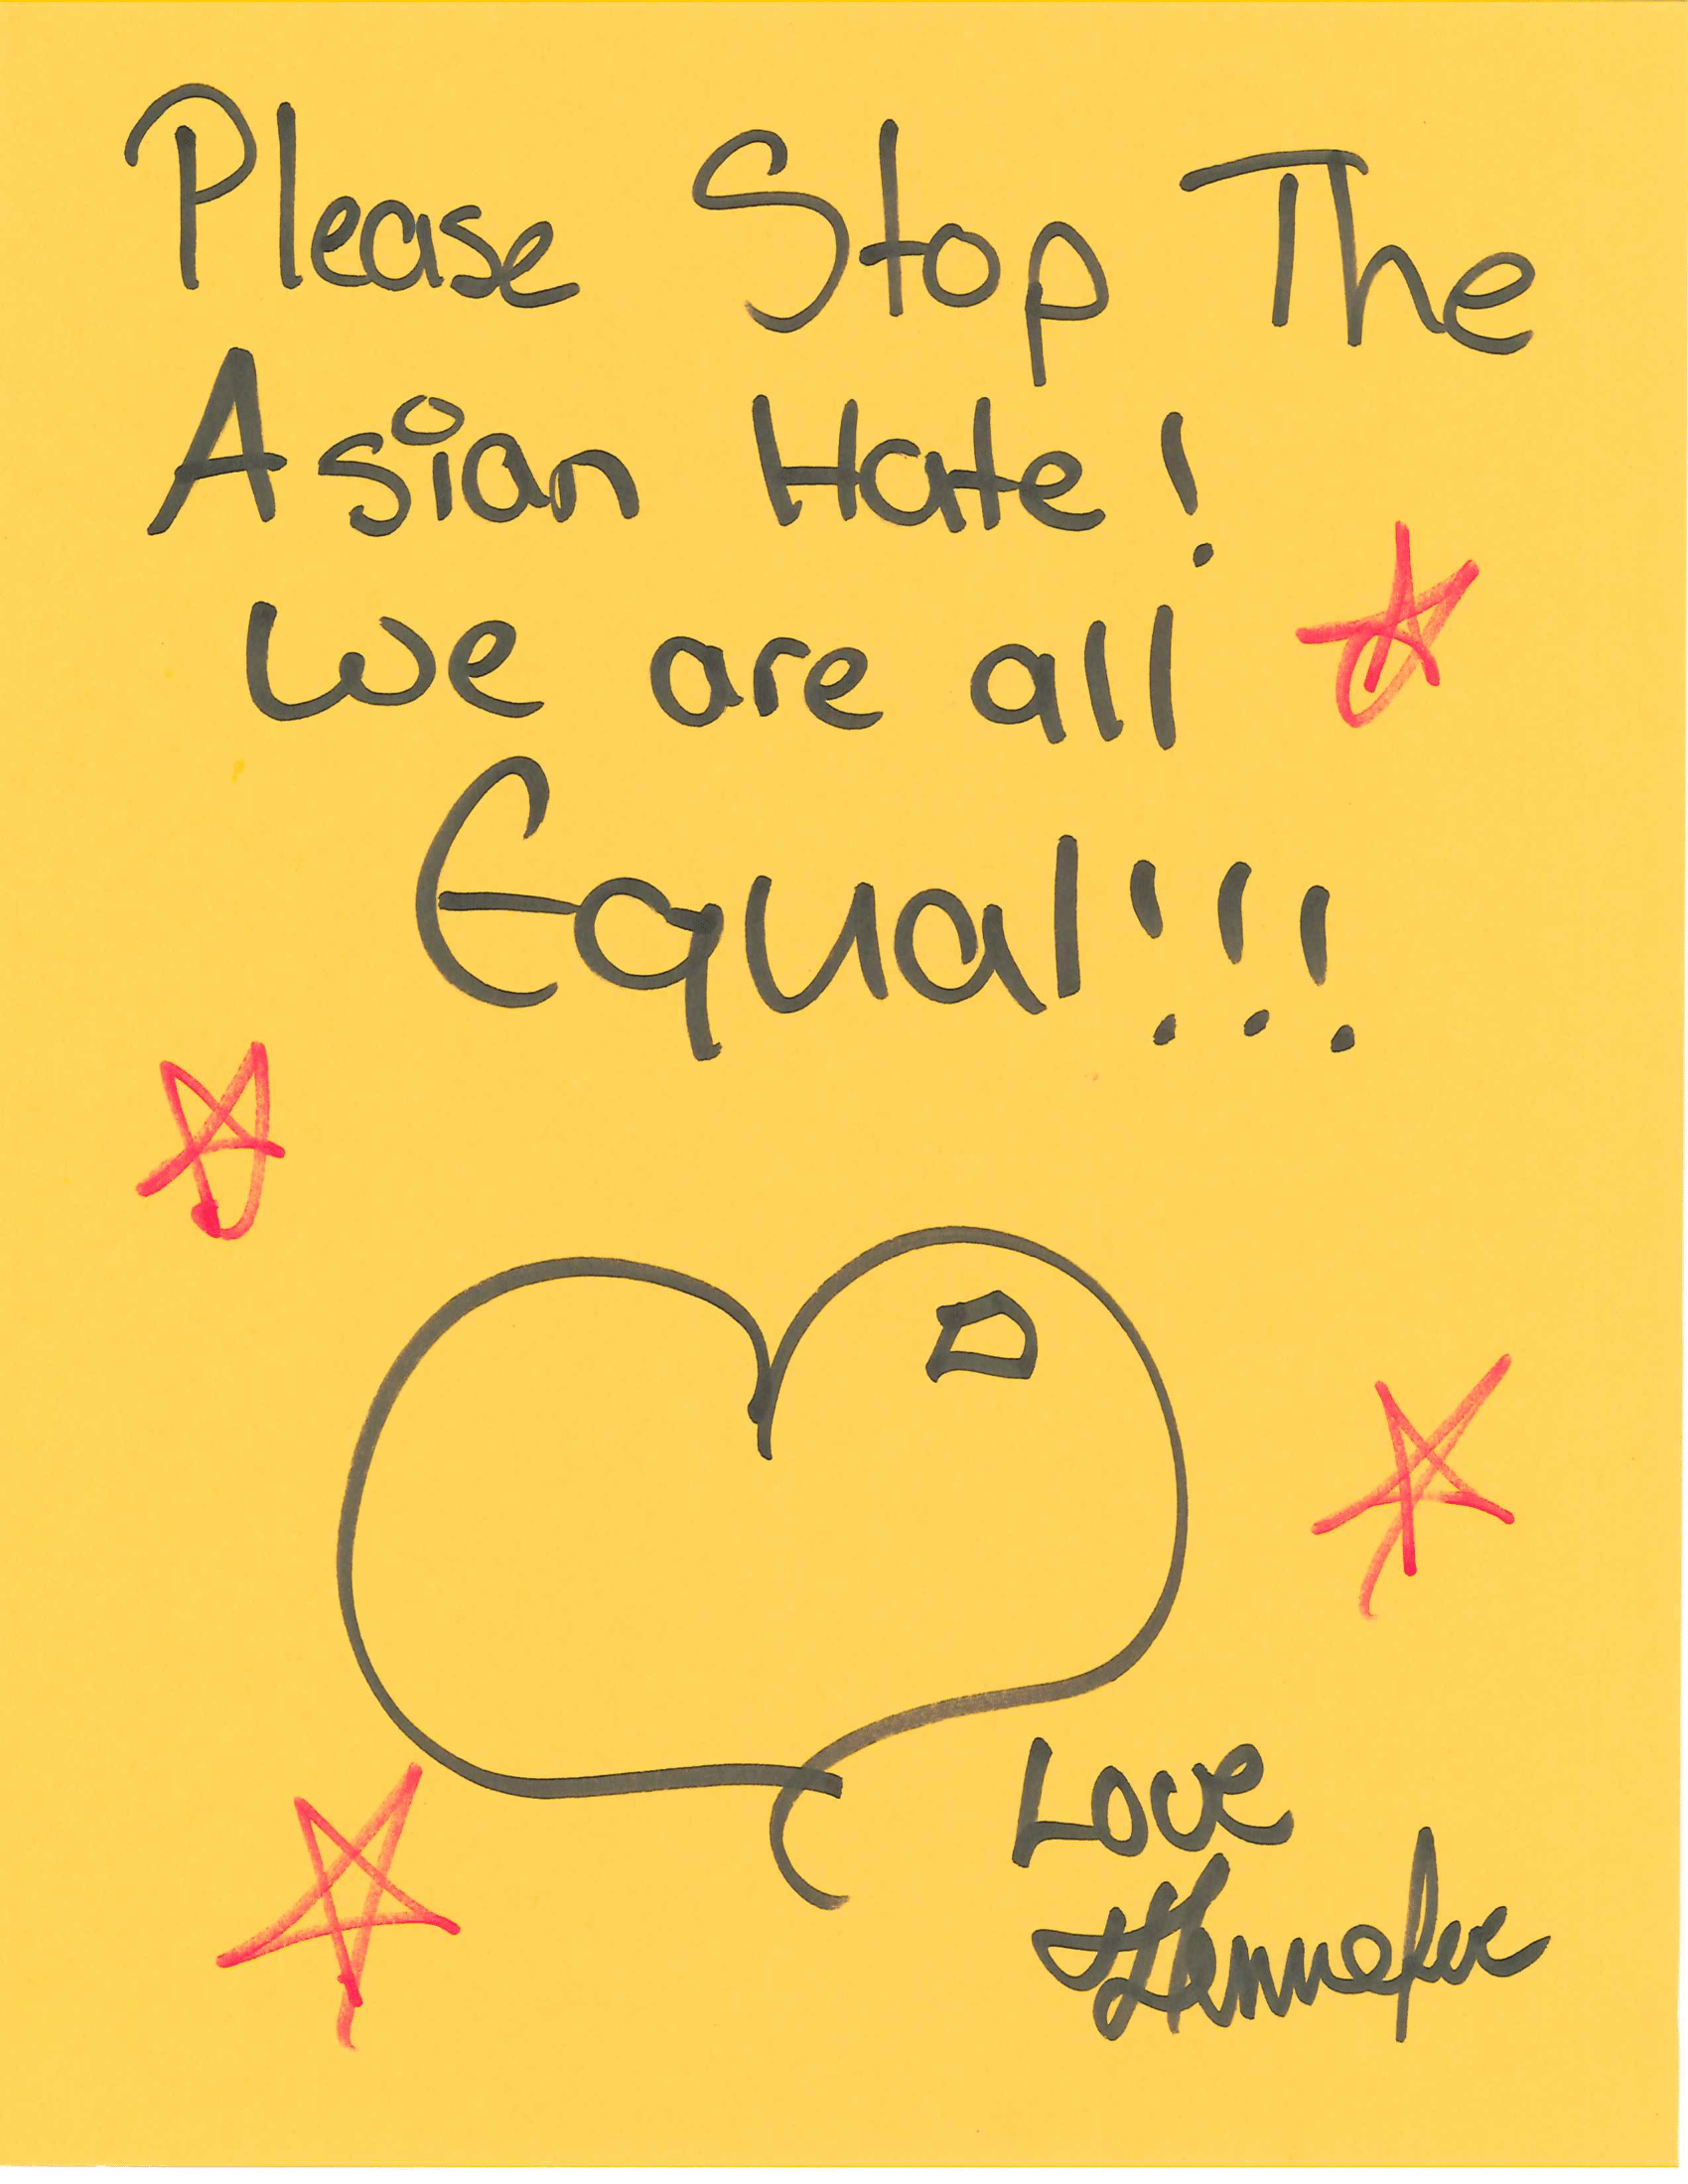 Please Stop The
Asian Hate!
We are all
Equal!!!
Love